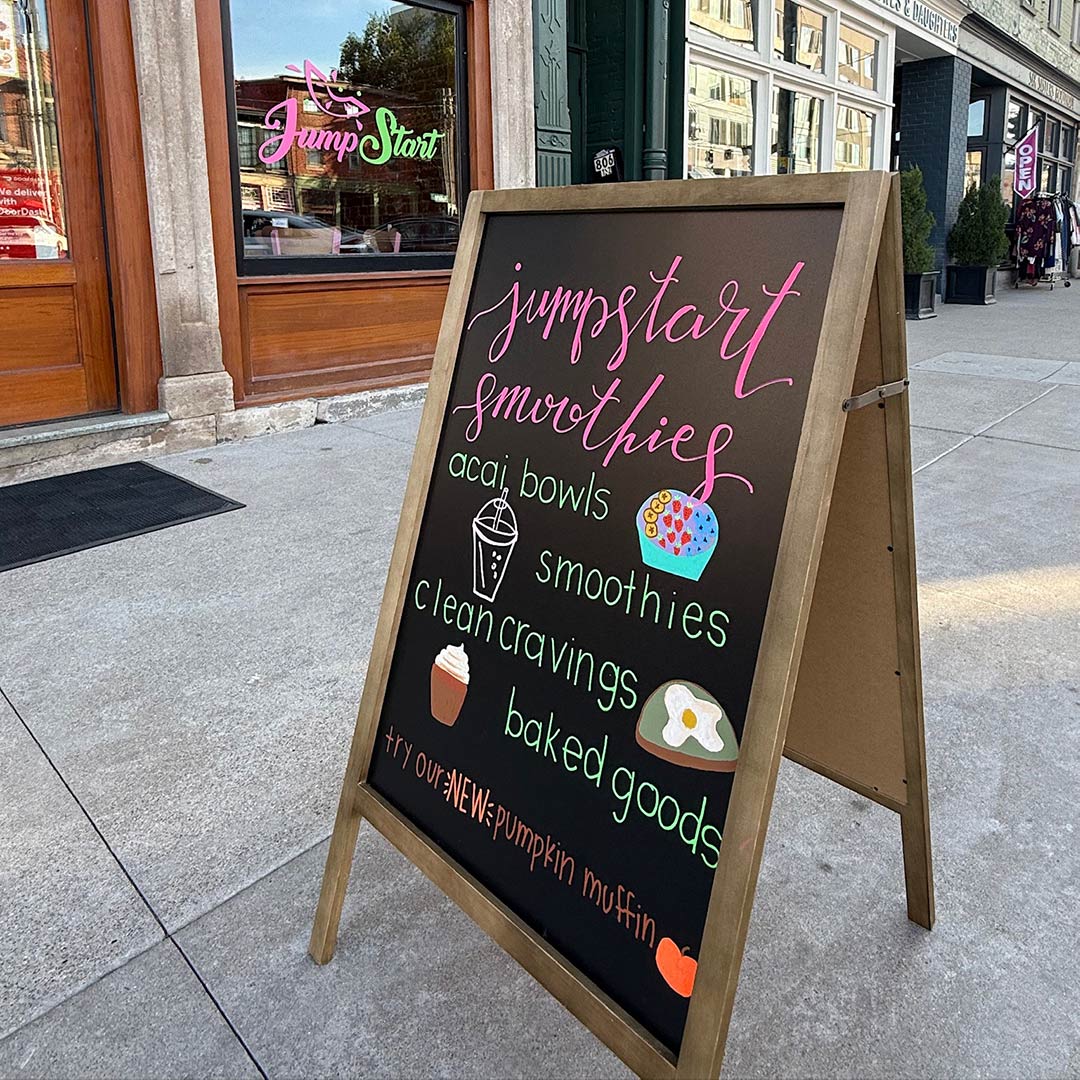 We deliver
with
DoorDash
JumpStart
806
& DAUGHTERS
OPEN
jumpstart
smoothies
acai bowls
smoothies
clean cravings
baked goods
try our NEW pumpkin muffin